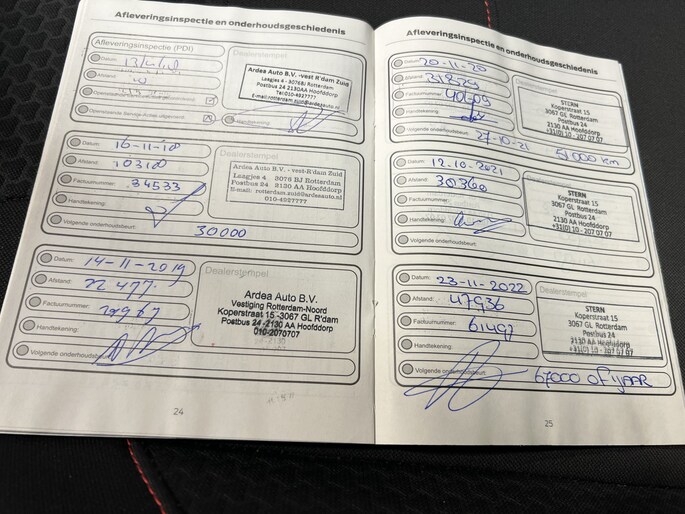 Afleveringsinspectie en onderhoudsgeschiedenis
Afleveringsinspectie (PDI)
Datum:
Afstand:
Handtekening:
Dealerstempel
Ardea Auto B.V. -vest R'dam Zuid
Laagjes 4 - 3076BJ Rotterdam
Postbus 24 2130AA Hoofddorp
Tel:010-4927777
E-mail:rotterdam.zuid@ardeaauto.nl
Datum: 16-11-18
Afstand: 10310
Factuurnummer: 34533
Handtekening:
Volgende onderhoudsbeurt: 30000
Dealerstempel
Ardea Auto B.V. - vest-R'dam Zuid
Laagjes 4 3076 BJ Rotterdam
Postbus 24 2130 AA Hoofddorp
E-mail: rotterdam.zuid@ardeaauto.nl
010-4927777
Datum: 14-11-2019
Afstand: 22477
Factuurnummer:
Handtekening:
Volgende onderhoudsbeurt:
Dealerstempel
Ardea Auto B.V.
Vestiging Rotterdam-Noord
Koperstraat 15 -3067 GL R'dam
Postbus 24 -2130 AA Hoofddorp
010-2070707
24
Afleveringsinspectie en onderhoudsgeschiedenis
Datum: 20-11-20
Afstand:
Factuurnummer:
Handtekening:
Volgende onderhoudsbeurt: 27-10-21 51000 km
STERN
Koperstraat 15
3067 GL Rotterdam
Postbus 24
2130 AA Hoofddorp
+31(0) 10 - 207 07 07
Datum: 12-10-2021
Afstand: 30360
Factuurnummer:
Handtekening:
Volgende onderhoudsbeurt:
Dealerstempel
STERN
Koperstraat 15
3067 GL Rotterdam
Postbus 24
2130 AA Hoofddorp
+31(0) 10 - 207 07 07
Datum: 23-11-2022
Afstand: 47936
Factuurnummer: 61497
Handtekening:
Volgende onderhoudsbeurt: 67000 of jaar
Dealerstempel
STERN
Koperstraat 15
3067 GL Rotterdam
Postbus 24
2130 AA Hoofddorp
+31(0) 10 - 207 07 07
25